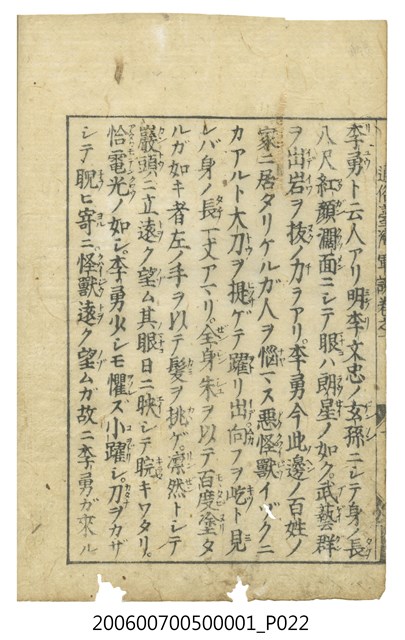 李勇ト云人アリ明李文忠ノ玄孫ニシテ身ノ長
八尺紅顔濶面ニシテ眼ハ朗星ノ如ク武藝群
ヲ出岩ヲ抜ノ力ラアリ李勇今此邊ノ百姓ノ
家ニ居タリケルガ人ヲ悩マス悪怪獣イヅクニ
カアルト大刀ヲ提ゲテ躍リ出向フヲ屹ト見
レバ身ノ長一丈アマリ全身朱ヲ以テ百度塗タ
ルガ如キ者左ノ手ヲ以テ髪ヲ挑ゲ凛然トシテ
巖頭ニ立遠ク望ム其眼日ニ映シテ睆キワタリ
恰電光ノ如シ李勇少シモ懼ス小躍シ刀ヲカザ
シテ覘ヒ寄ニ怪獣遠ク望ムガ故ニ李勇ガ來ル
200600700500001_P022